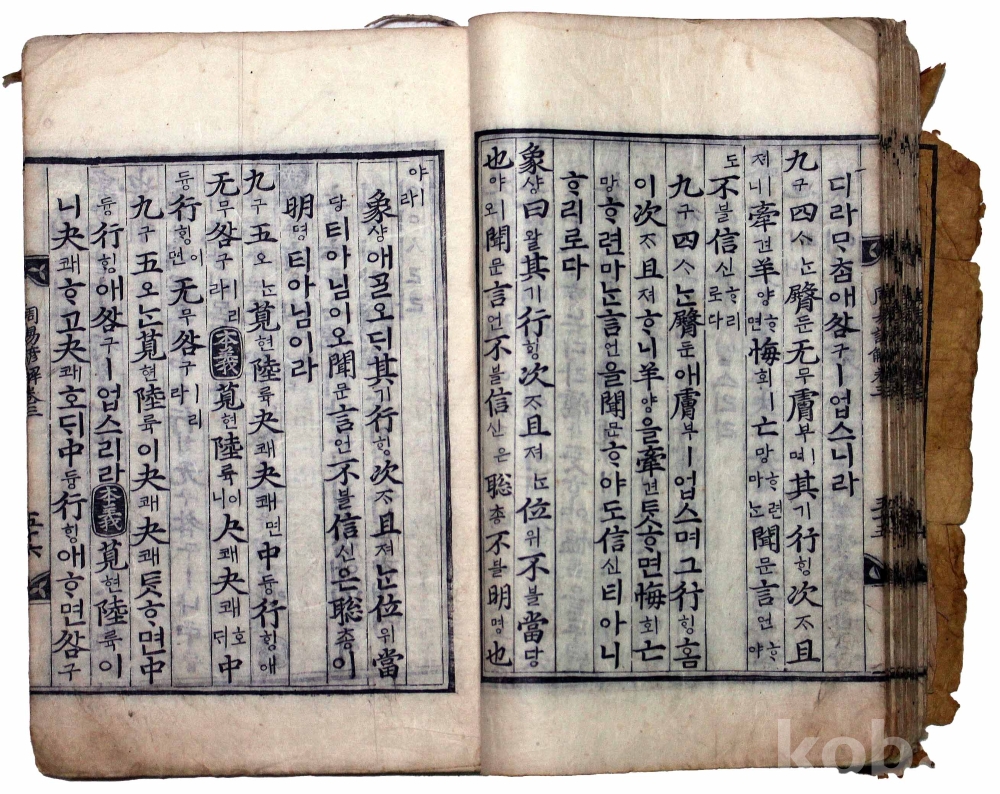 디라ᄆᆞᄎᆞᆷ애咎구ㅣ업스니라
九구四ᄉᆞᄂᆞᆫ臀둔无무膚부ㅣ며其기行ᄒᆡᆼ次ᄌᆞ且
져ㅣ니牽견羊양ᄒᆞ면悔회ㅣ亡망ᄒᆞ련마ᄂᆞᆫ聞문言언ᄒᆞ야
도不블信신ᄒᆞ리로다
九구四ᄉᆞᄂᆞᆫ臀둔애膚부ㅣ업스며그行ᄒᆡᆼ홈
이次ᄌᆞ且져ᄒᆞ니羊양을牽견ᄐᆞᆺᄒᆞ면悔회亡
망ᄒᆞ련마ᄂᆞᆫ言언을聞문ᄒᆞ야도信신티아니
ᄒᆞ리로다
象샹曰왈其기行ᄒᆡᆼ次ᄌᆞ且져ᄂᆞᆫ位위不블當당
也야ㅣ오聞문言언不블信신은聰총不블明명也
야ㅣ라
象샹애ᄀᆞᆯ오ᄃᆡ其기行ᄒᆡᆼ次ᄌᆞ且져ᄂᆞᆫ位위當
당티아님이오聞문言언不블信신은聰총이
明명티아님이라
九구五오ᄂᆞᆫ莧현陸륙夬쾌夬쾌면中듕行ᄒᆡᆼ애
无무咎구ㅣ리라本義莧현陸륙이니夬쾌夬쾌호ᄃᆡ中
듕行ᄒᆡᆼ이면无무咎구ㅣ리라
九구五오ᄂᆞᆫ莧현陸륙이夬쾌夬쾌ᄐᆞᆺᄒᆞ면中
듕行ᄒᆡᆼ애咎구ㅣ업스리라本義莧현陸륙이
니夬쾌ᄒᆞ고夬쾌호ᄃᆡ中듕行ᄒᆡᆼ애ᄒᆞ면咎구
周易諺解卷三
五十六
kob